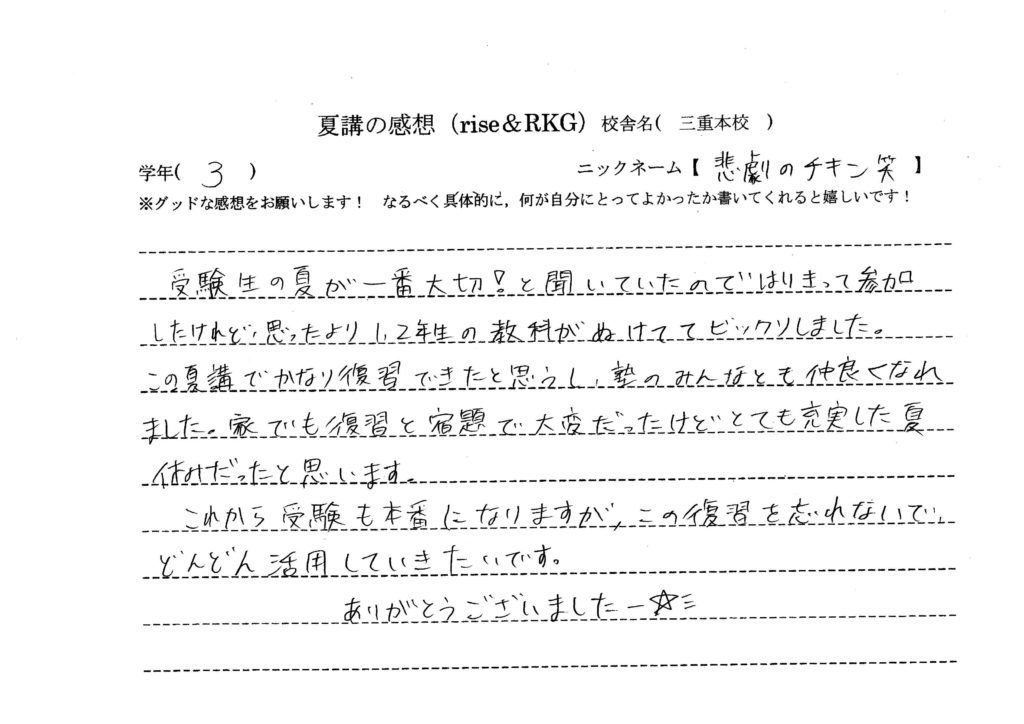 夏講の感想（rise＆RKG）校舎名( 三重本校 )
学年( 3 ) ニックネーム【 悲劇のチキン笑 】
※グッドな感想をお願いします！ なるべく具体的に，何が自分にとってよかったか書いてくれると嬉しいです！
受験生の夏が一番大切！と聞いていたのではりきって参加
したけれど、思ったより1,2年生の教科がぬけててビックリしました。
この夏講でかなり復習できたと思うし、塾のみんなとも仲良くなれ
ました。家でも復習と宿題で大変だったけどとても充実した夏
休みだったと思います。
これから受験も本番になりますが、この復習を忘れないで、
どんどん活用していきたいです。
ありがとうございましたー☆ミ